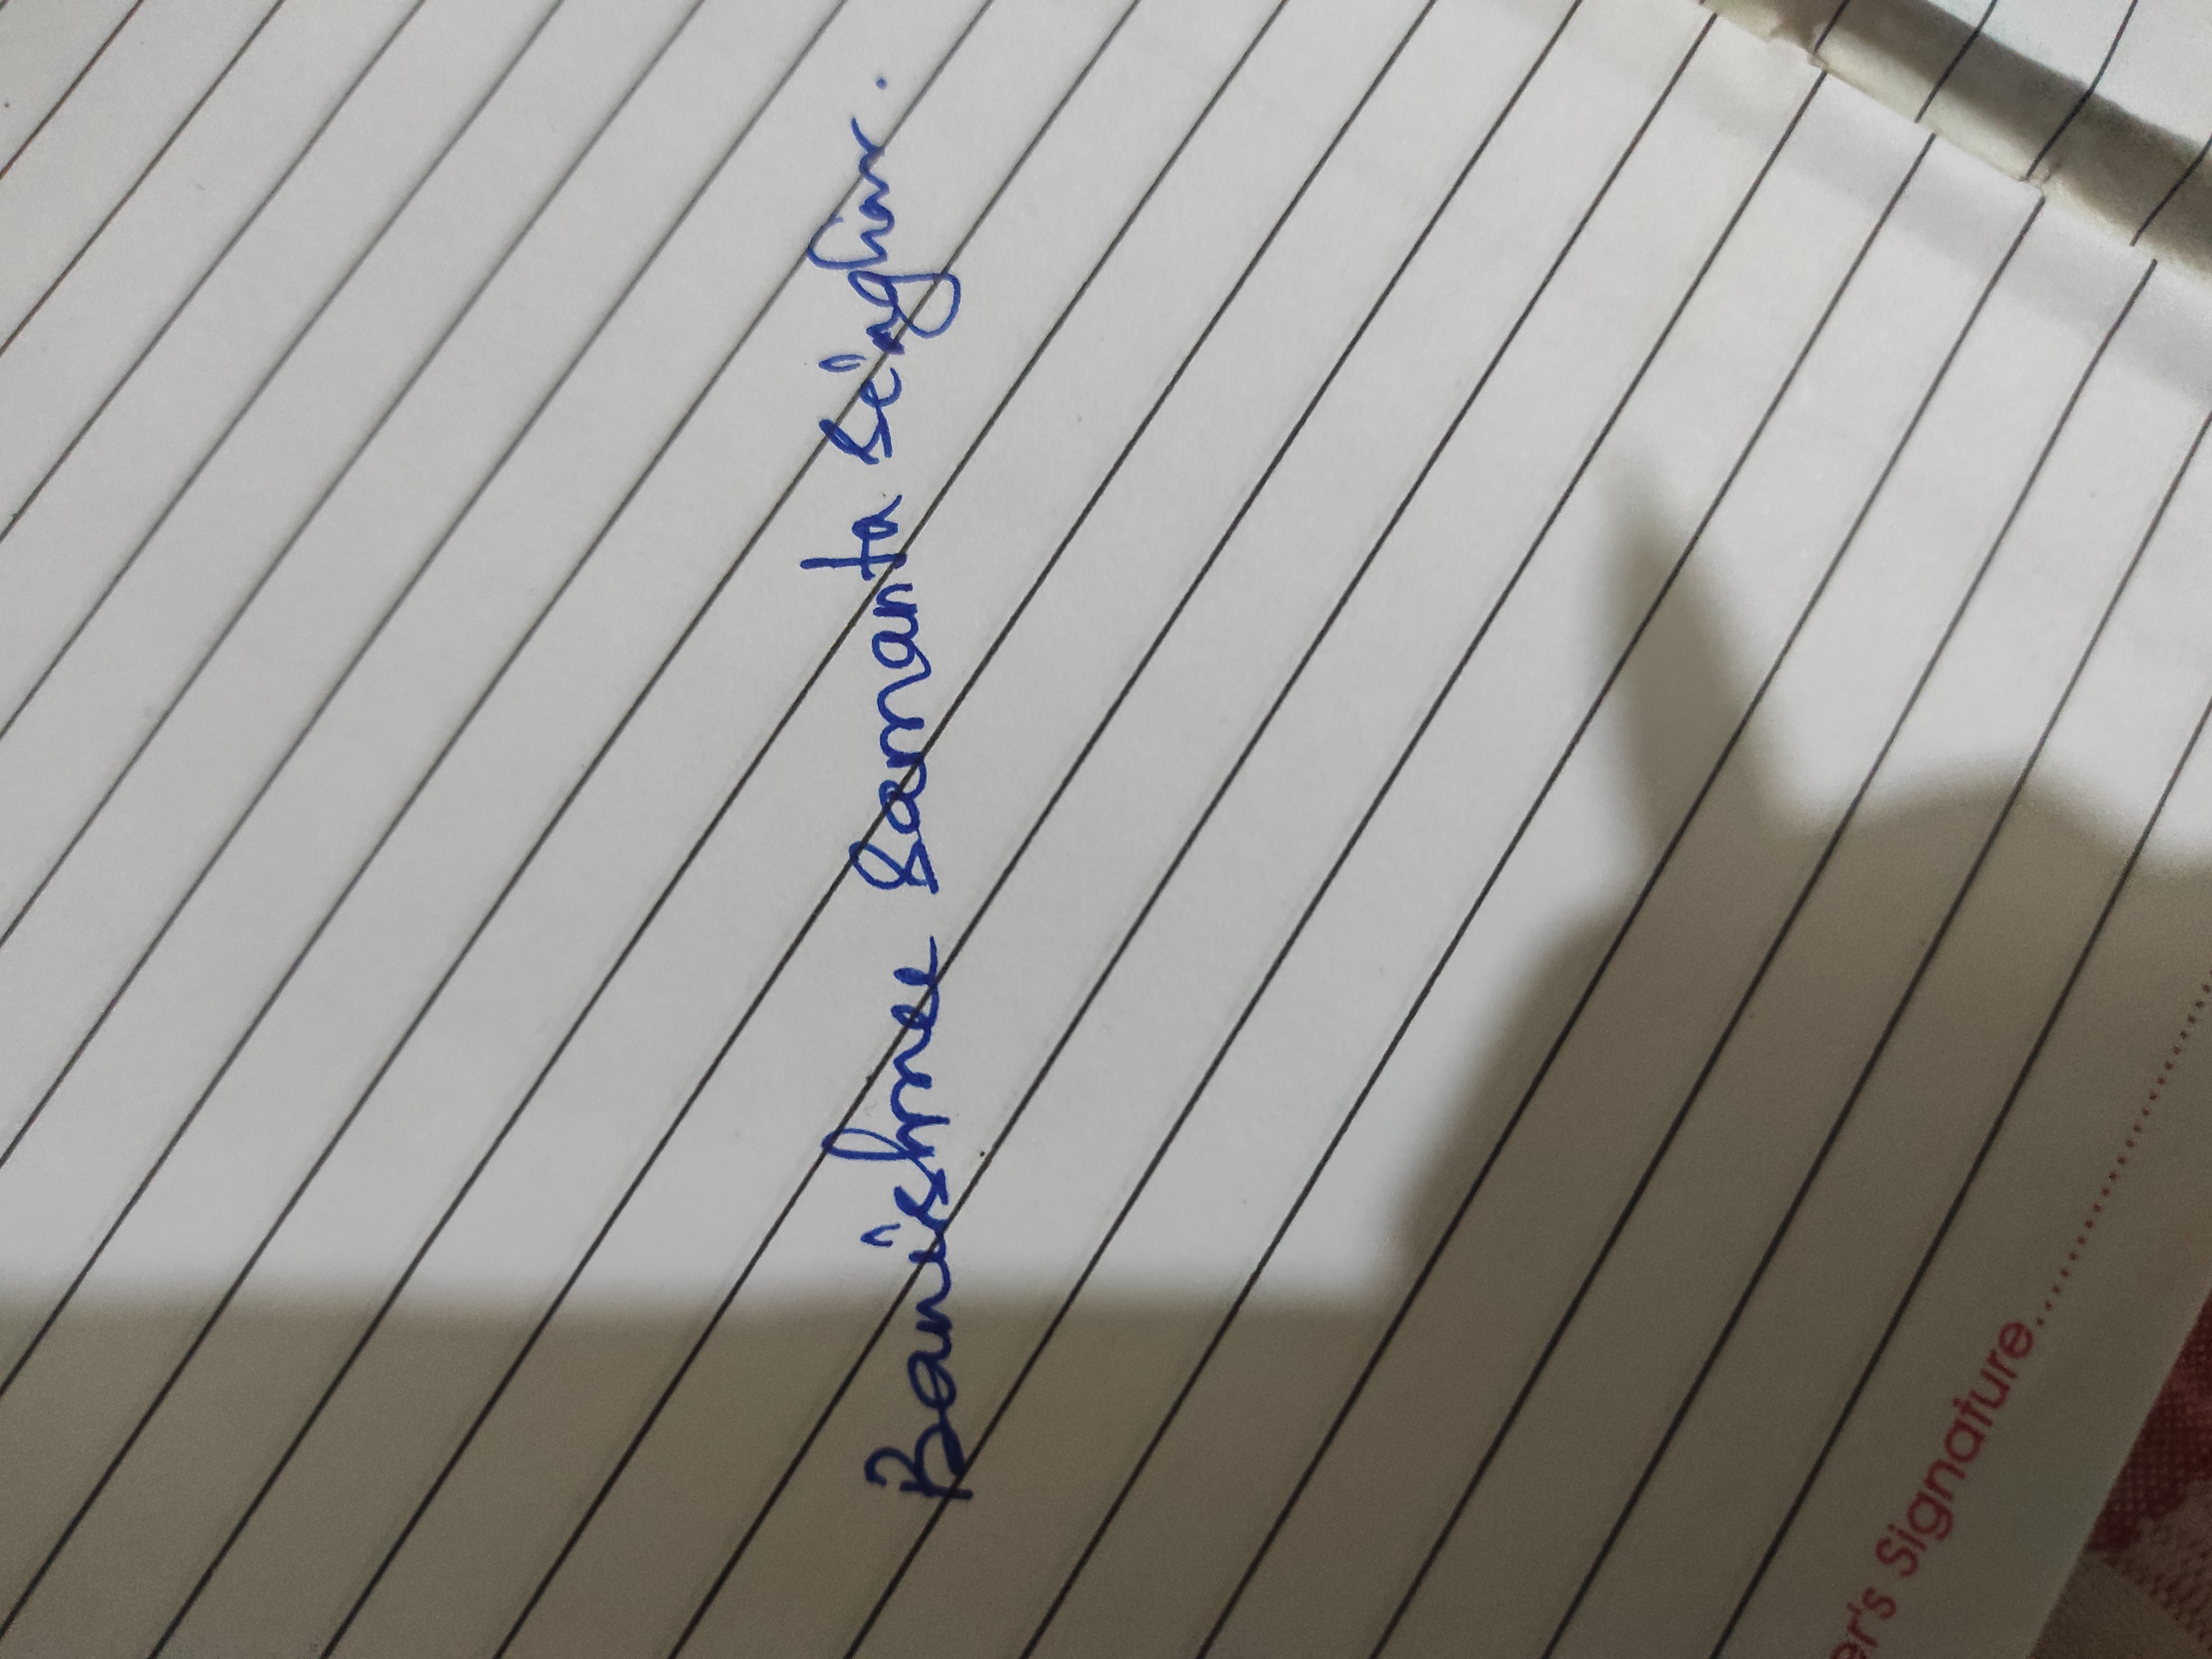 Banishree Samanta Singhar.
er's Signature..........................